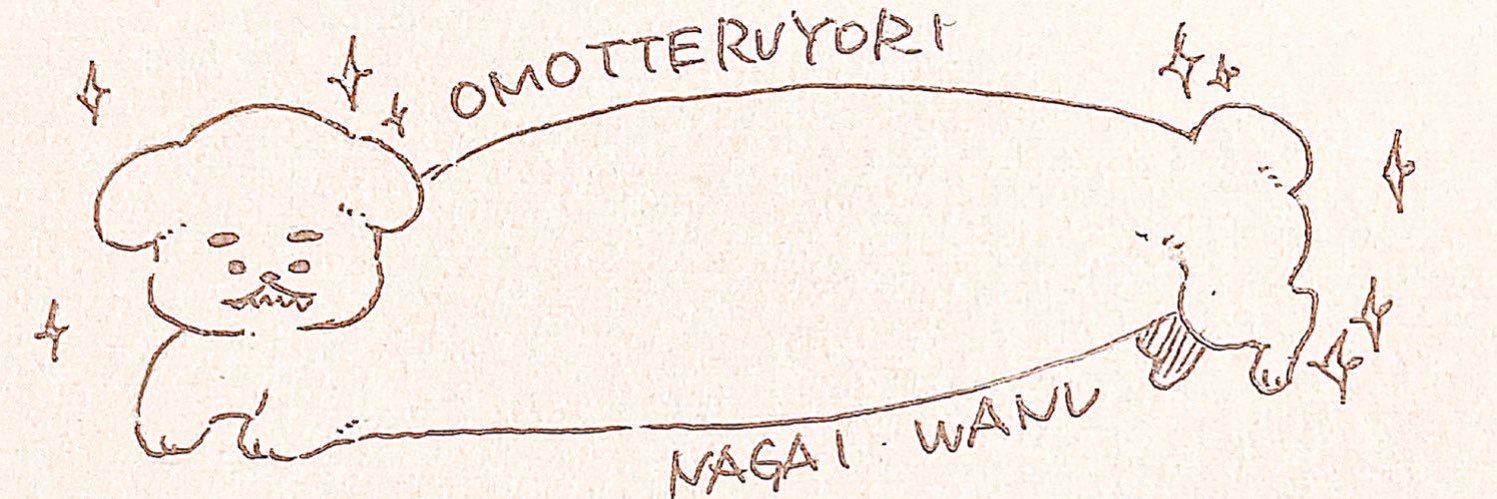 OMOTTERUYORI
NAGAI・WANU